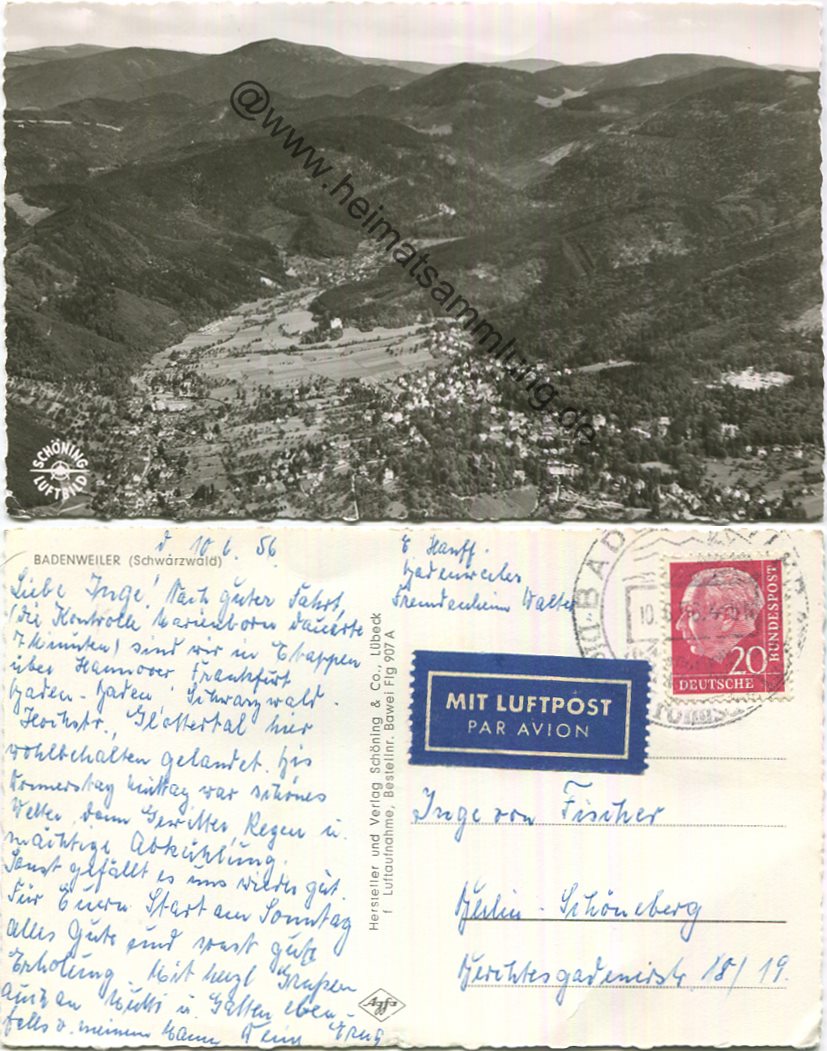 @www.heimatsammlung.de
SCHÖNING
LUFTBILD
d 10 6. 56
BADENWEILER (Schwarzwald)
Liebe Inge! Nach guter Fahrt,
(die Kontrolle Marienborn dauerte
7 Minuten) sind wir in Etappen
über Hannover, Frankfurt
Baden-Baden, Schwarzwald-
Hochstr., Glottertal hier
wohlbehalten gelandet. Bis
Donnerstag Mittag war schönes
Wetter, dann Gewitter, Regen u.
mächtige Abkühlung.
Sonst gefällt es uns wieder gut.
Für Euern Start am Sonntag
alles Gute und sonst gute
Erholung. Mit herzl Grüßen
auch an Mutti u. Gatten eben-
falls v. meinem Mann Deine
Hersteller und Verlag Schöning & Co., Lübeck
f Luftaufnahme, Bestellnr. Bawei Flg 907 A
Agfa
E Hauff.
Badenweiler
Fremdenheim Walter
BAD
20
DEUTSCHE
BUNDESPOST
MIT LUFTPOST
PAR AVION
Inge von Fischer
Berlin-Schöneberg
Berchtesgadenerstr. 18/19.